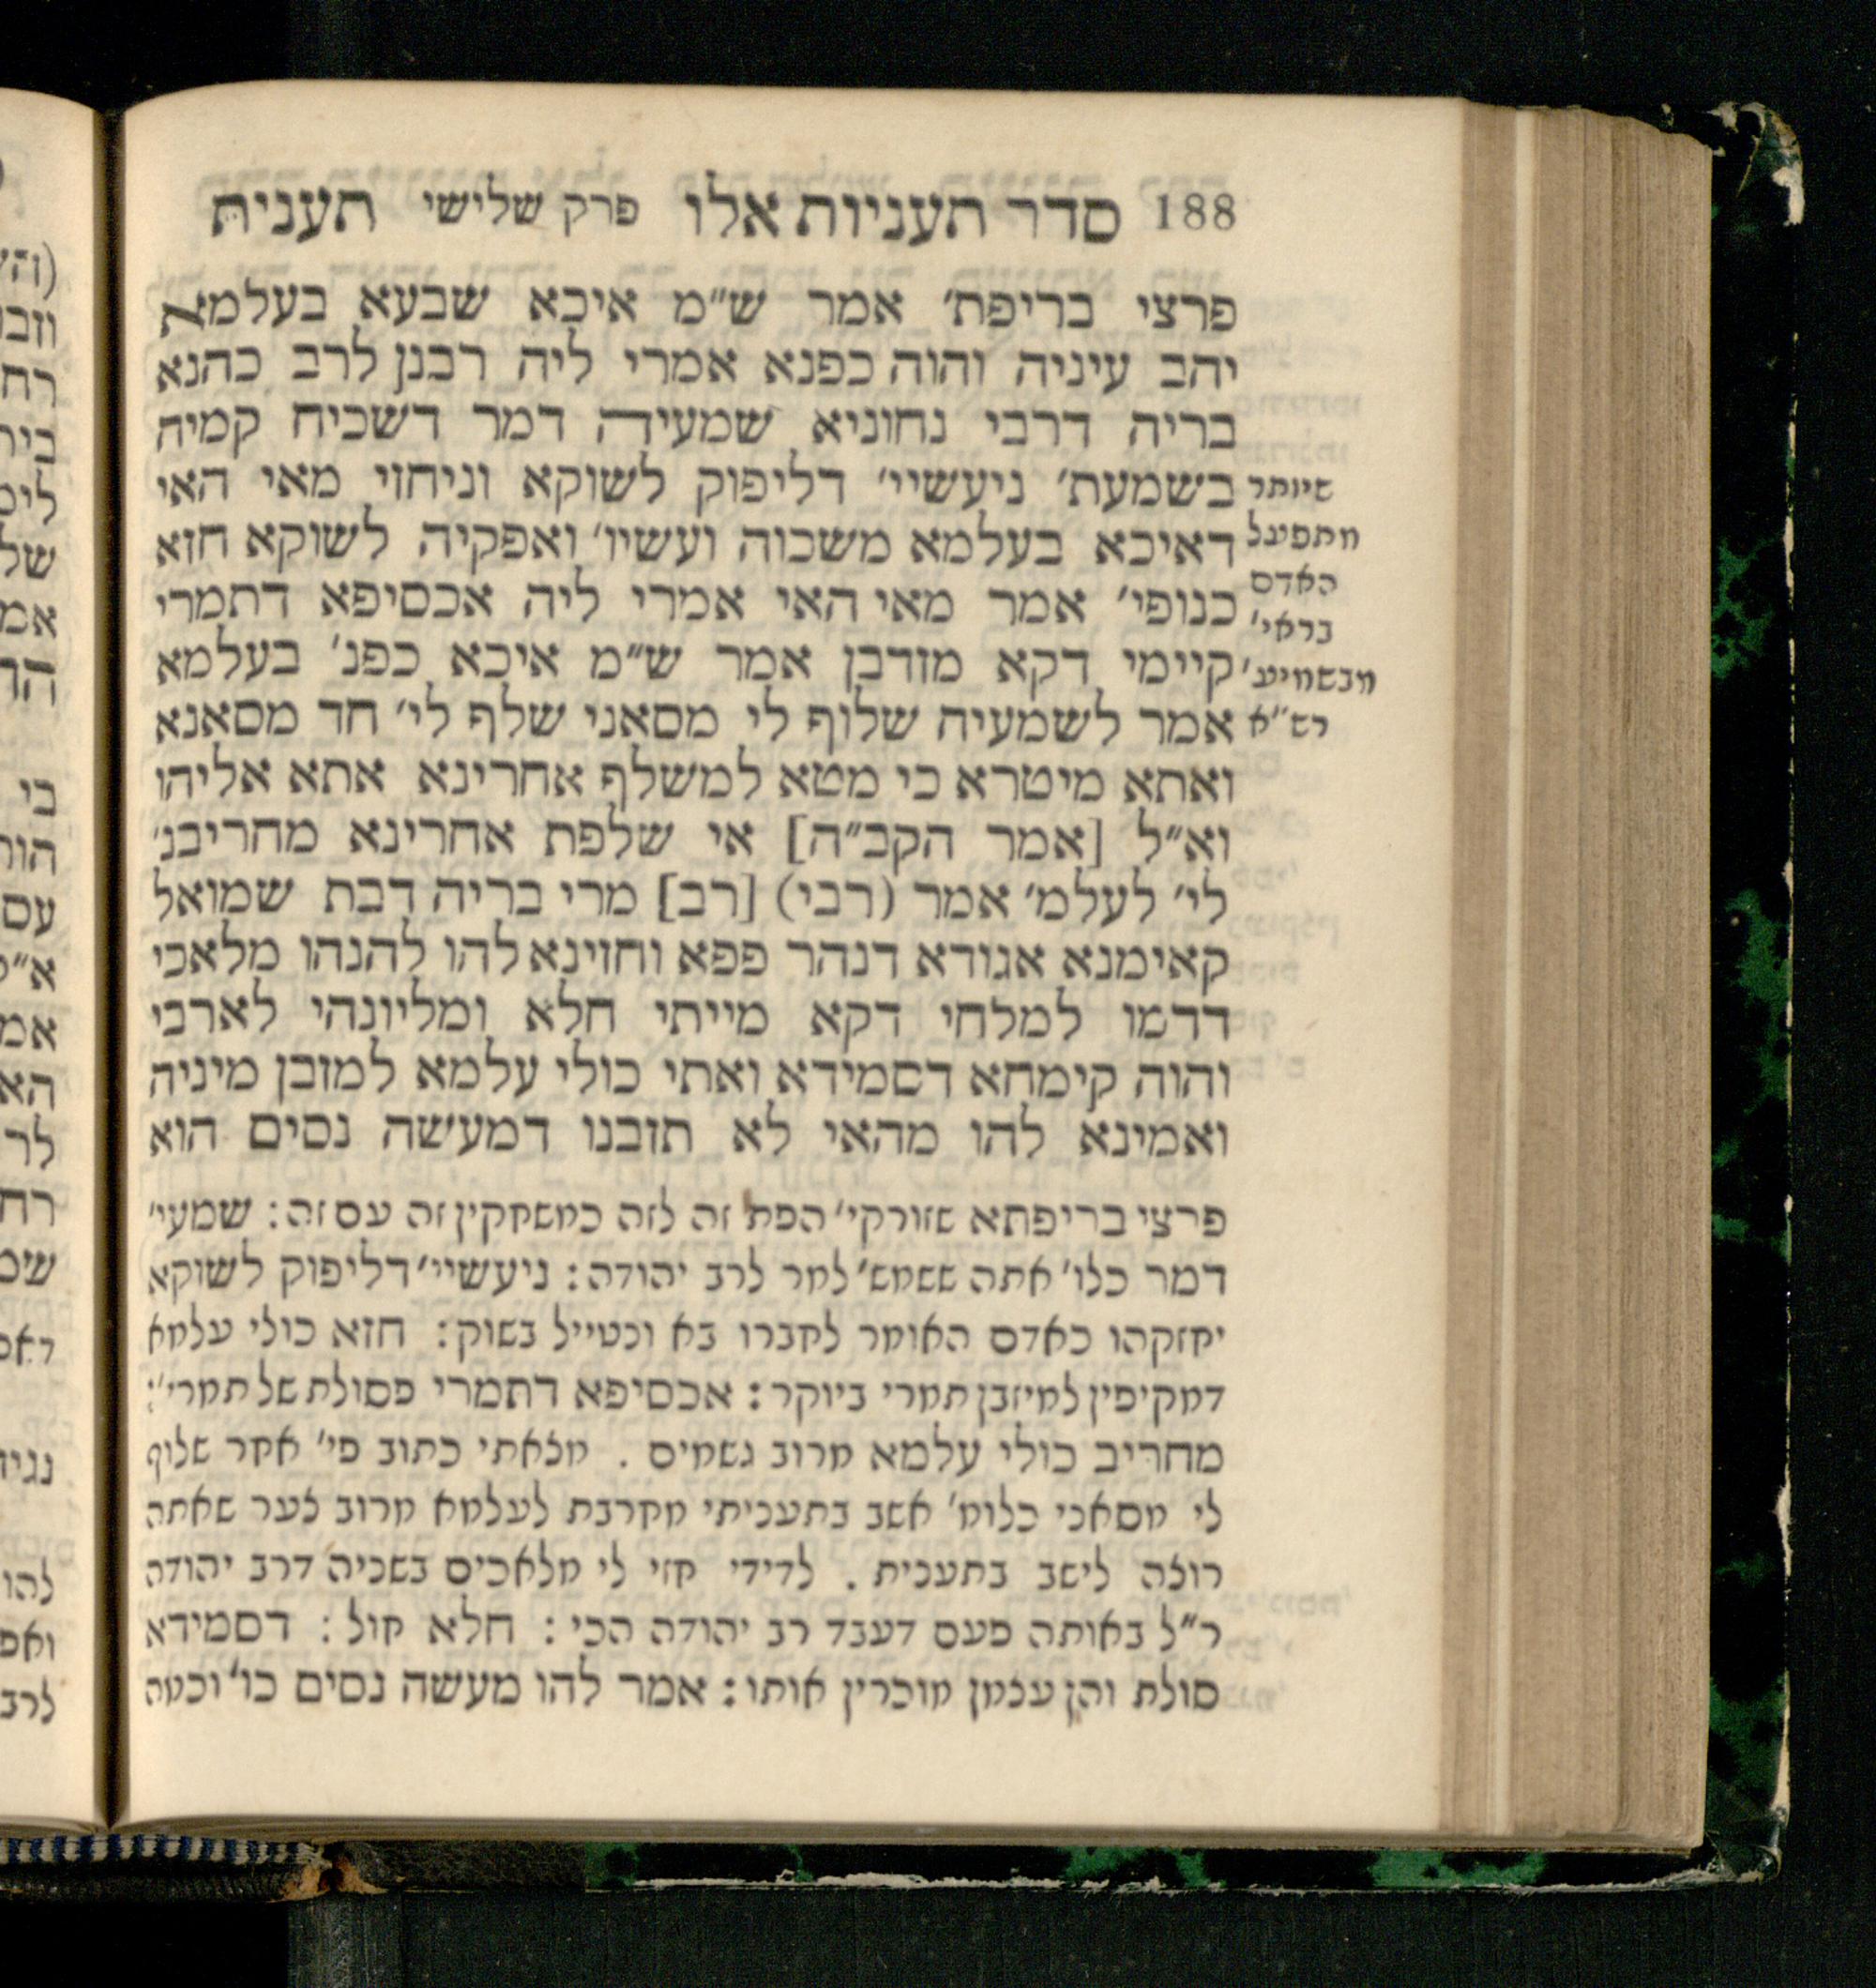 188 סדר תעניות אלו פרק שלישי תענית
פרצי בריפת׳ אמר ש״מ איכא שבעא בעלמא
יהב עיניה והוה כפנא אמרי ליה רבנן לרב כהנא
בריה דרבי נחוניא שמעיה דמר דשכיח קמיה
בשמעת׳ ניעשיי׳ דליפוק לשוקא וניחזי מאי האי
דאיכא בעלמא משכוה ועשיו׳ ואפקיה לשוקא חזא
כנופי׳ אמר מאי האי אמרי ליה אכסיפא דתמרי
קיימי דקא מזדבן אמר ש״מ איכא כפנ׳ בעלמא
אמר לשמעיה שלוף לי מסאני שלף לי׳ חד מסאנא
ואתא מיטרא כי מטא למשלף אחרינא אתא אליהו
וא״ל [אמר הקב״ה] אי שלפת אחרינא מחריבנ׳
לי׳ לעלמ׳ אמר (רבי) [רב] מרי בריה דבת שמואל
קאימנא אגודא דנהר פפא וחזינא להו להנהו מלאכי
דדמו למלחי דקא מייתי חלא ומליונהי לארבי
והוה קימחא דסמידא ואתי כולי עלמא למזבן מיניה
ואמינא להו מהאי לא תזבנו דמעשה נסים הוא
שיותר
מתפעל
האדם
בראי׳
מבשמיע׳
רש״א
פרצי בריפתא שזורקי׳ הפת זה לזה כמשחקין זה עם זה: שמעי׳
דמר כלו׳ אתה ששמש׳ למר לרב יהודה: ניעשיי׳ דליפוק לשוקא
יחזקהו כאדם האומר לחברו בא ונטייל בשוק: חזא כולי עלמא
דמקיפין למיזבן תמרי ביוקר: אכסיפא דתמרי פסולת של תמרי׳:
מחריב כולי עלמא מרוב גשמים . מצאתי כתוב פי׳ אחר שלוף
לי מסאני כלומ׳ אשב בתעניתי מקרבת לעלמא מרוב צער שאתה
רוצה לישב בתענית . לדידי חזי לי מלאכים בשניה דרב יהודה
ר״ל באותה פעם דעבד רב יהודה הכי: חלא חול: דסמידא
סולת והן עצמן מוכרין אותו: אמר להו מעשה נסים כו׳ וכמה